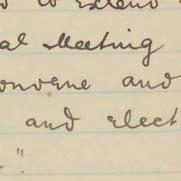 to extend
al Meeting
onvene and
and elect
."